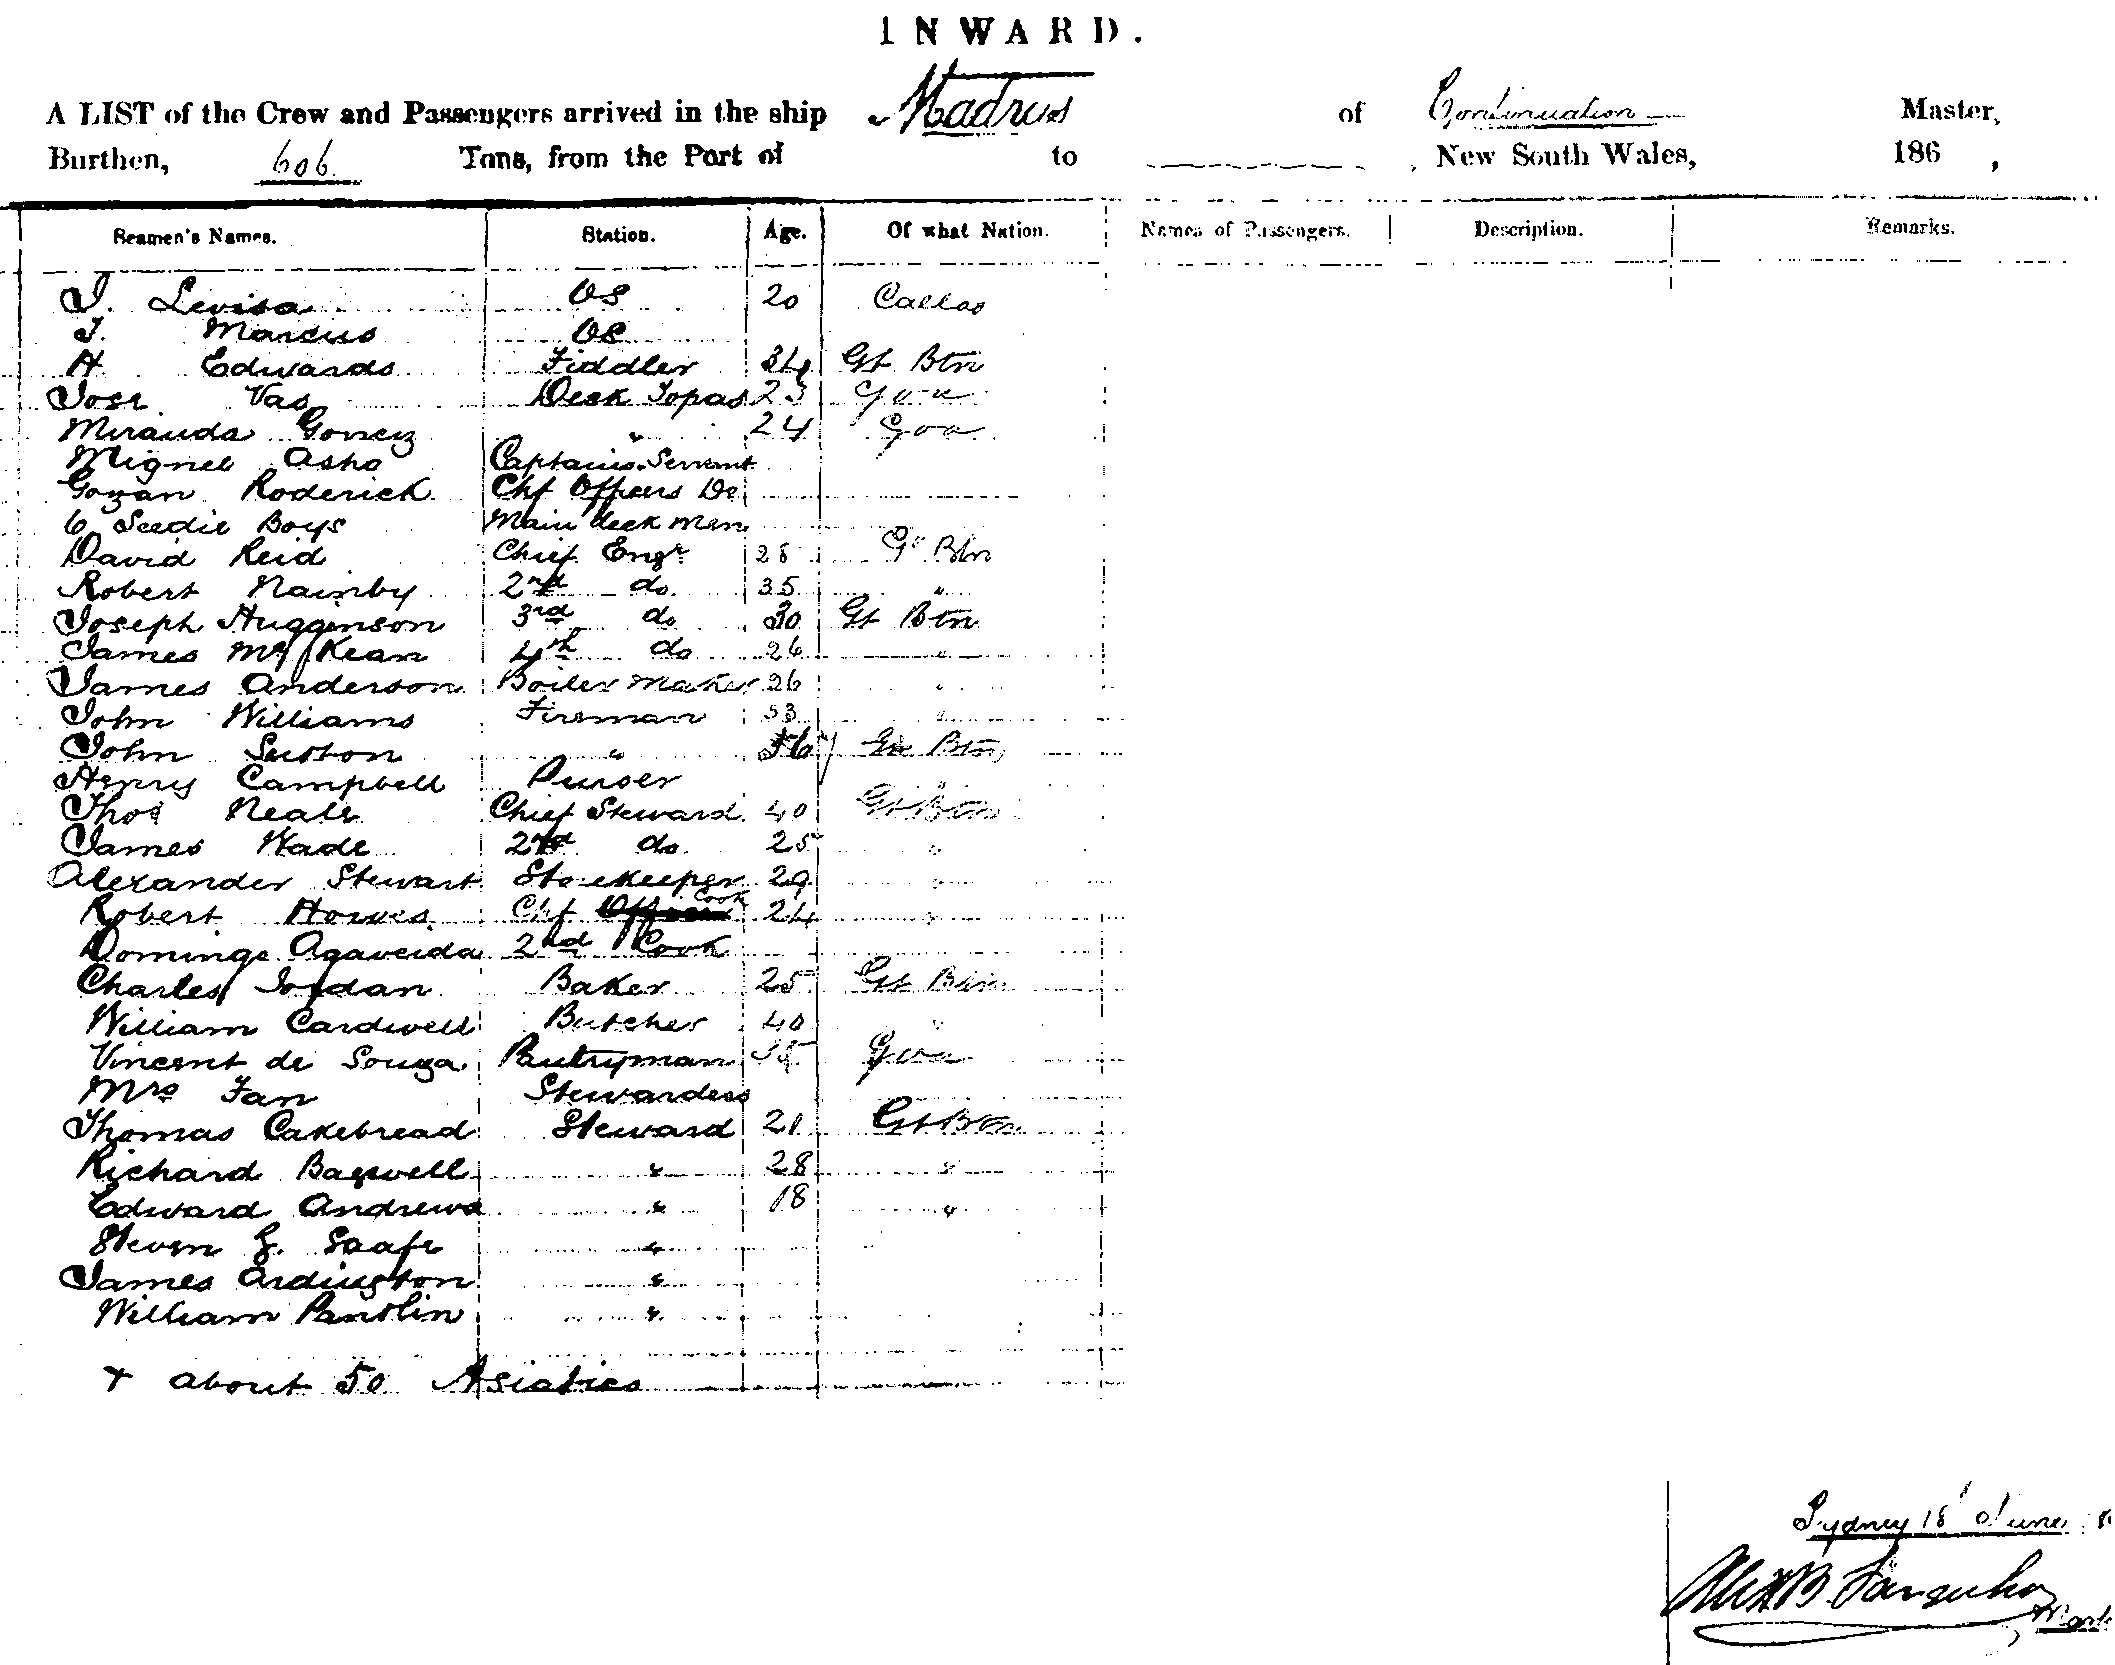 INWARD.
A LIST of the Crew and Passengers arrived in the ship Madras of Continuation Master,
Burthen, 606 Tons, from the Port of to , New South Wales, 186 ,
Seamen's Names. Station. Age. Of what Nation. Names of Passengers. Description. Remarks.
J. Levisa OS 20 Callao
J. Marcus OS
H Edwards Fiddler 34 Gt Btn
Jose Vas Deck Topas 23 Goa
Miranda Gomez " 24 Goa
Miguel Asho Captains Servant
Gozan Roderick Chf Officers Do
6 Seedie Boys Main deck men
David Reid Chief Engr 28 Gt Btn
Robert Nainby 2nd do 35 "
Joseph Hugginson 3rd do 30 Gt Btn
James McKean 4th do 26 "
James Anderson Boiler Maker 26 "
John Williams Fireman 33 "
John Sutton " 56 Gt Btn
Henry Campbell Purser
Thos Neale Chief Steward 40 Gt Btn
James Wade 2nd do 25 "
Alexander Stewart Storekeeper 29 "
Robert Howes Chf Cook 24 "
Domingo Agaveida 2nd Cook
Charles Jordan Baker 25 Gt Btn
William Cardwell Butcher 40 "
Vincent de Souza Pantryman 35 Goa
Mrs Fan Stewardess
Thomas Cakebread Steward 21 Gt Btn
Richard Bagwell " 28 "
Edward Andrews " 18 "
Steven G. Saafe "
James Ardington "
William Pantlin "
+ about 50 Asiatics
Sydney 18 June
Alex B. Farquhar